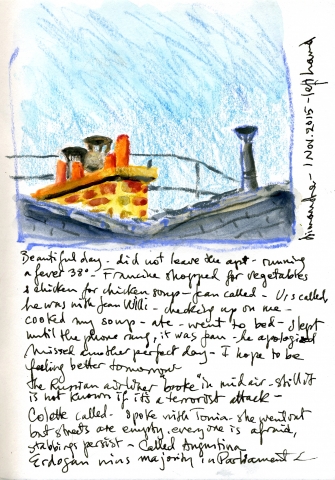 Beautiful day - did not leave the apt - running
a fever 38° - Francine shopped for vegetables
& chicken for chicken soup - Jean called - Urs called
he was with Jean Willi - checking up on me -
cooked my soup - ate - went to bed - slept
until the phone rang, it was Jan - he apologised
missed another perfect day - I hope to be
feeling better tomorrow
the Russian airliner "broke" in mid air - still it
is not known if it's a terrorist attack -
Colette called - spoke with Tonia - she went out
but streets are empty, everyone is afraid,
stabbings persist - Called Augustina
Erdogan wins majority in Parliament
1 Nov. 2015 - left hand